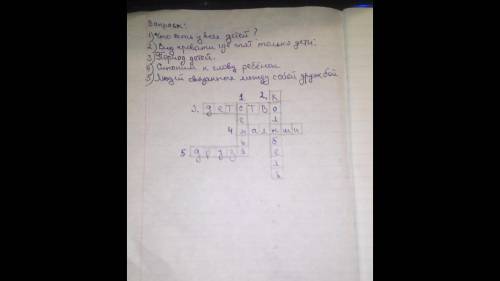 Вопросы:
1) Что есть у всех детей?
2) Вид кровати где спят только дети.
3) Период детей.
4) Синоним к слову ребёнок
5) Людей связанных между собой дружбой
1. 2. К
3. Д е Т С Т В О
е л
4 м а л ы ш и
ь б
5 д р у з ь е
л
ь